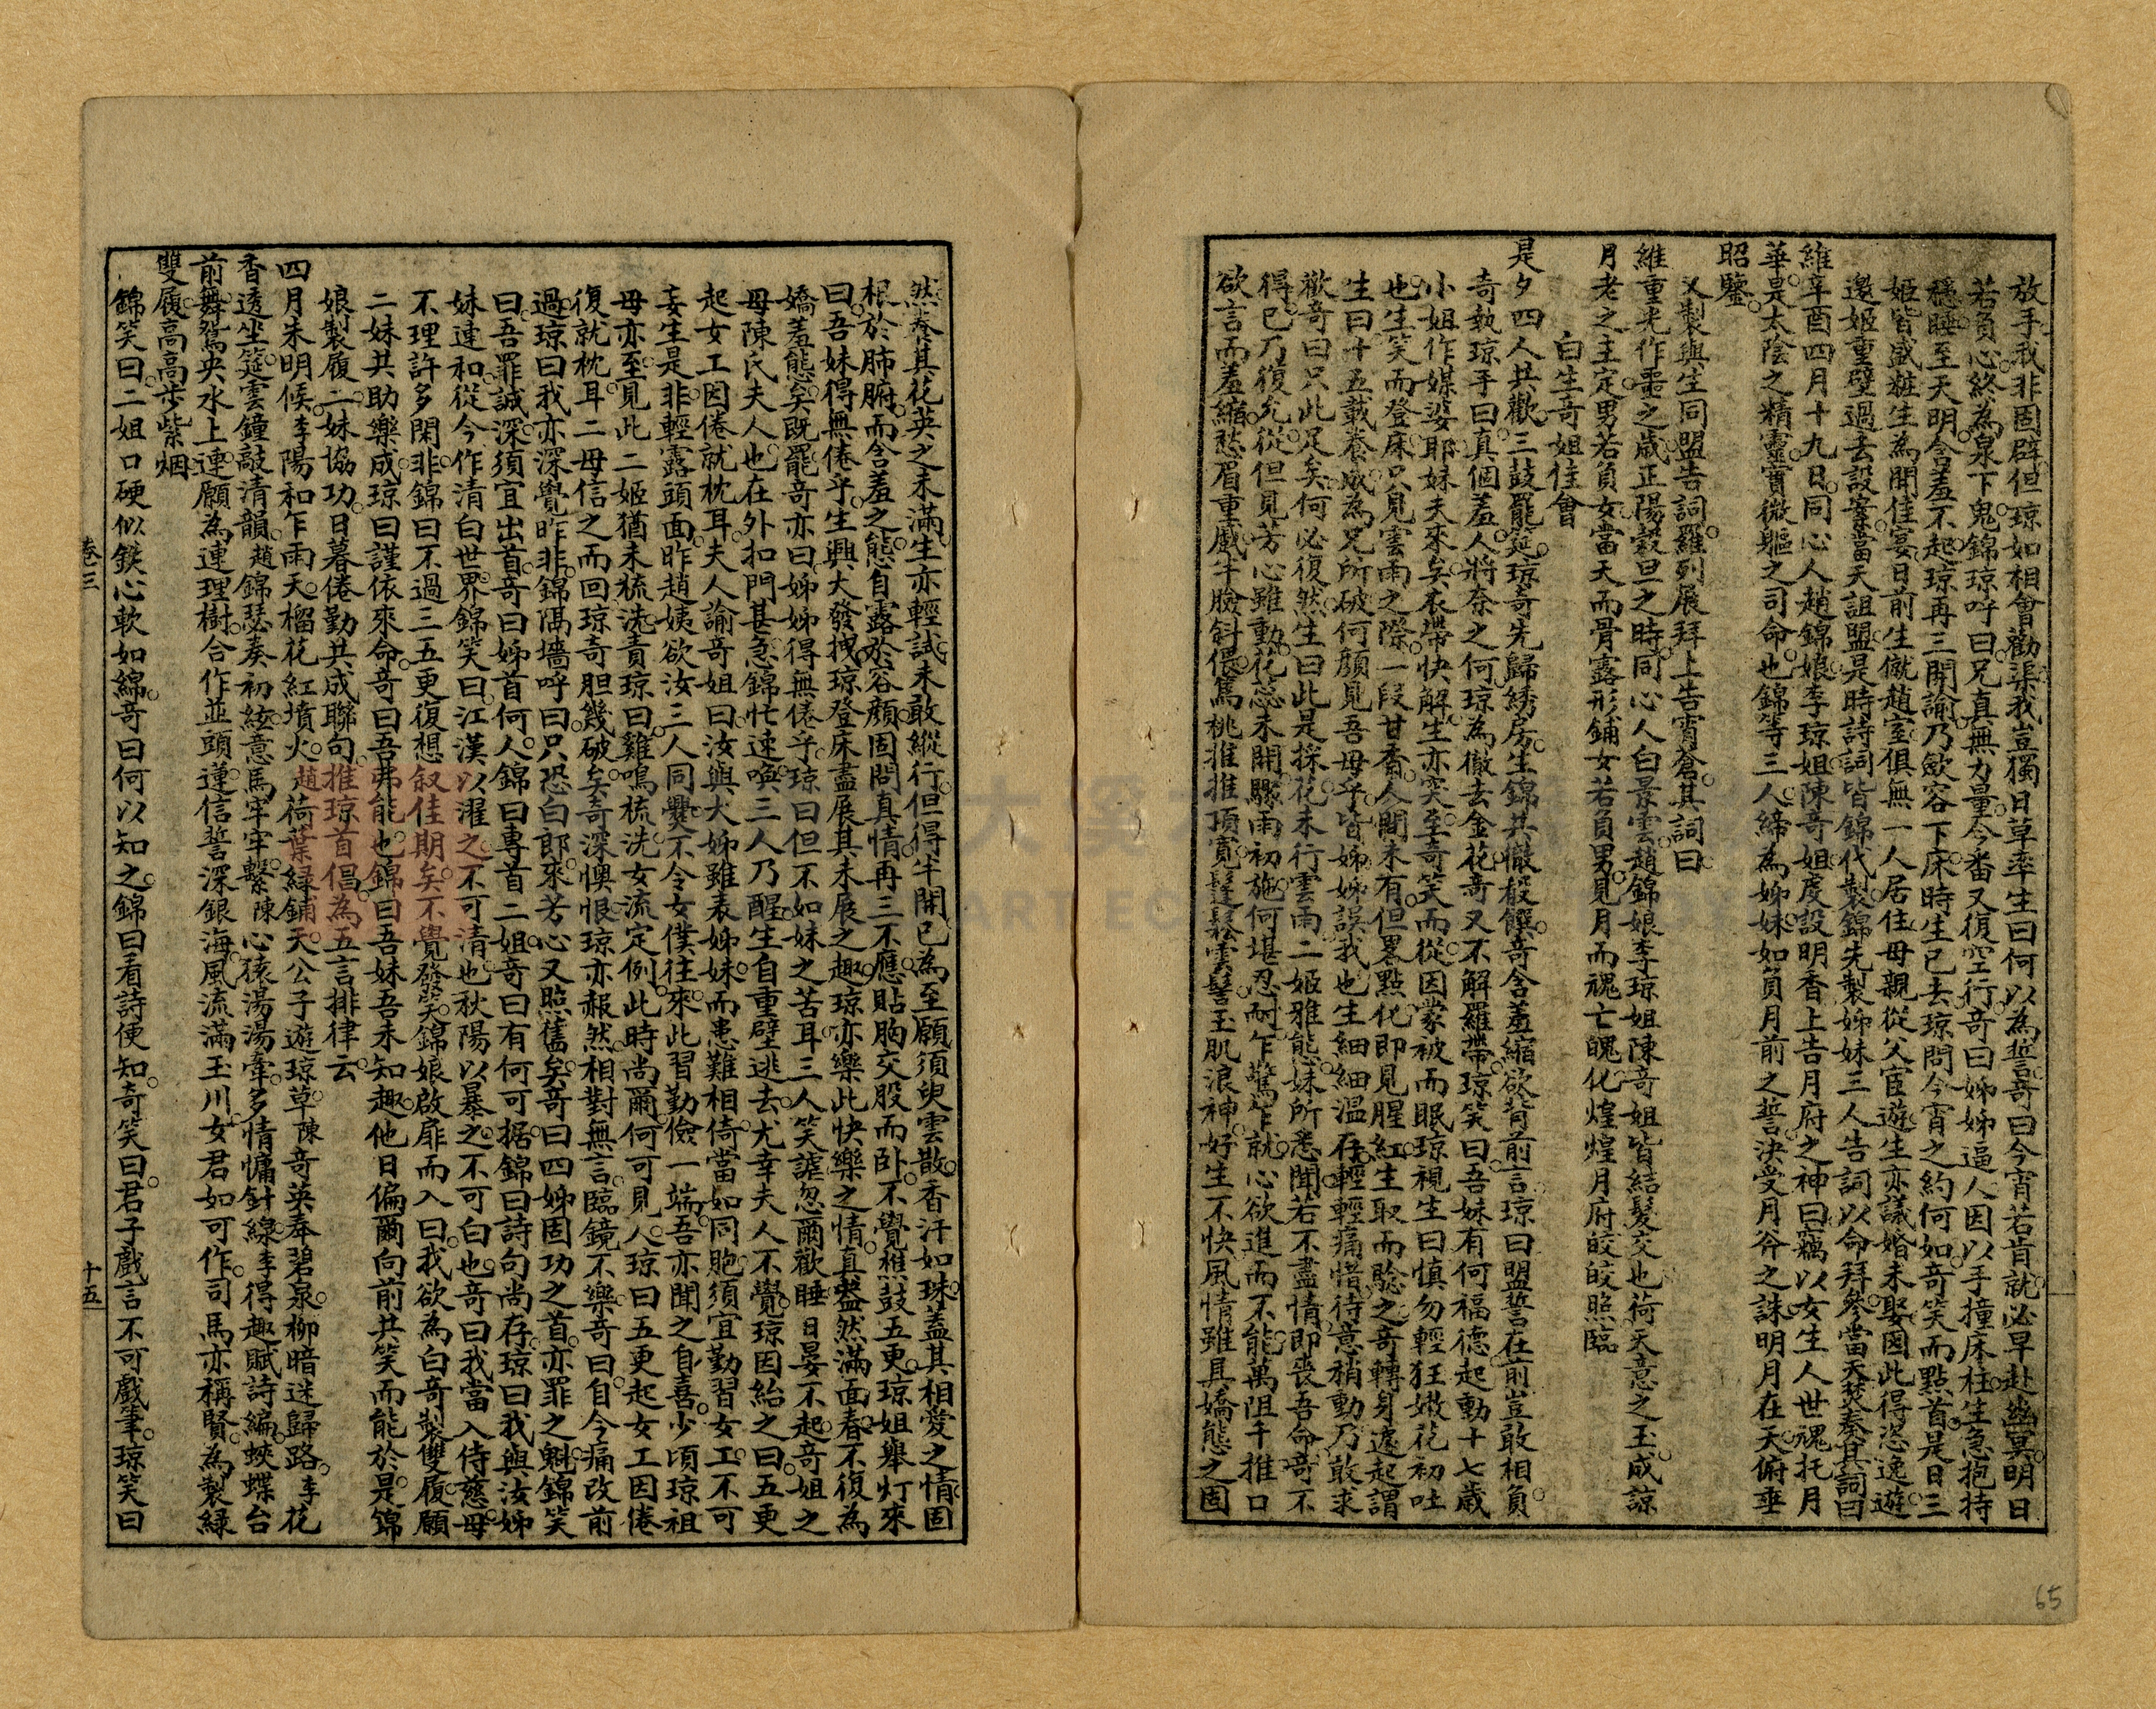 放手我非固辟但琼如相會勸渠我豈獨日草率生曰何以為誓奇曰今宵若肯就必早赴幽冥明日
若負心終為泉下鬼錦琼呼曰兄真無力量今番又復空行奇曰姊姊逼人因以手撞床柱生急抱持
穩睡至天明含羞不起琼再三開諭乃斂容下床時生已去琼問今宵之約何如奇笑而點首是日三
姬皆盛粧生為開佳宴日前生僦趙室俱無一人居住母親從父宦遊生亦議婚未娶因此得恣逸遊
邀姬重壁過去設案當天詛盟是時詩詞皆錦代製錦先製姊妹三人告詞以命拜參當天焚奏其詞曰
維辛酉四月十九日同心人趙錦娘李琼姐陳奇姐虔設明香上告月府之神曰竊以女生人世魂托月
華是太陰之精靈實微軀之司命也錦等三人締為姊妹如負月前之誓決受月斧之誅明月在天俯垂
昭鑒
又製與生同盟告詞羅列展拜上告霄蒼其詞曰
維重光作噩之歲正陽穀旦之時同心人白景雲趙錦娘李琼姐陳奇姐皆結髮交也荷天意之玉成諒
月老之主定男若負女當天而骨露形鋪女若負男見月而魂亡魄化煌煌月府皎皎照臨
白生奇姐佳會
是夕四人共歡三鼓罷延琼奇先歸綉房生錦共徹殽饌奇含羞縮欲背前言琼曰盟誓在前豈敢相負
奇執琼手曰真個羞人將奈之何琼為徹去金花奇又不解羅帶琼笑曰吾妹有何福德起動十七歲
小姐作媒婆耶妹夫來矣衣帶快解生亦突至奇笑而從因蒙被而眠琼視生曰慎勿輕狂嫩花初吐
也生笑而登床只見雲雨之際一段甘香人間未有但畧點化即見腥紅生取而驗之奇轉身遽起謂
生曰十五載養成為兄所破何顏見吾母乎皆姊姊誤我也生細細溫存輕輕痛惜待意稍動乃敢求
歡奇曰只此足矣何必復然生曰此是採花未行雲雨二姬雅態妹所悉聞若不盡情即喪吾命奇不
得已乃復允從但見芳心雖動花蕊未開驟雨初施何堪忍耐乍驚乍就心欲進而不能萬阻千推口
欲言而羞縮愁眉重感半臉斜偎為桃推推頂寬髮鬆雲髻玉肌浪神好生不快風情雖具嬌態之固
然奏其花英之未滿生亦輕試未敢縱行但得半開已為至願須臾雲散香汗如珠蓋其相愛之情固
根於肺腑而含羞之態自露於容顏固問真情再三不應貼胸交股而臥不覺樵鼓五更琼姐舉灯來
曰吾妹得無倦乎生興大發拽琼登床盡展其未展之趣琼亦樂此快樂之情真盎然滿面春不復為
嬌羞態矣既罷奇亦曰姊姊得無倦乎琼曰但不如妹之苦耳三人笑謔忽爾歡睡日晏不起奇姐之
母陳氏夫人也在外扣門甚急錦忙速喚三人乃醒生自重壁逃去尤幸夫人不覺琼因紿之曰五更
起女工因倦就枕耳夫人諭奇姐曰汝與大姊雖表姊妹而患難相倚當如同胞須宜勤習女工不可
妄生是非輕露頭面昨趙姨欲汝三人同爨不令女僕往來此習勤儉一端吾亦聞之自喜少頃琼祖
母亦至見此二姬猶未梳洗責琼曰雞鳴梳洗女流定例此時尚爾何可見人琼曰五更起女工因倦
復就枕耳二母信之而回琼奇胆幾破矣奇深懊恨琼亦赧然相對無言臨鏡不樂奇曰自今痛改前
過琼曰我亦深覺昨非錦隔墻呼曰只恐白郎來芳心又照舊矣奇曰四姊固功之首亦罪之魁錦笑
曰吾罪誠深須宜出首奇曰姊首何人錦曰專首二姐奇曰有何可据錦曰詩句尚存琼曰我與汝姊
妹達和從今作清白世界錦笑曰江漢以濯之不可清也秋陽以暴之不可白也奇曰我當入侍慈母
不理許多閑非錦曰不過三五更復想叙佳期矣不覺發笑錦娘啟扉而入曰我欲為白奇製雙履願
二妹共助樂成琼曰謹依來命奇曰吾弗能也錦曰吾妹吾未知趣他日偏爾向前共笑而能於是錦
娘製履二妹協功日暮倦勤共成聯句推琼首倡為五言排律云
四月朱明候李陽和乍雨天榴花紅墳火趙荷葉綠鋪天公子遊琼草陳奇英奉碧泉柳暗迷歸路李花
香透坐筵雲鐘敲清韻趙錦瑟奏初絃意馬牢牢繫陳心猿湯湯牽多情慵針線李得趣賦詩編蛺蝶台
前舞鴛央水上連願為連理樹合作並頭蓮信誓深銀海風流滿玉川女君如可作司馬亦稱賢為製綠
雙履高高步紫烟
錦笑曰二姐口硬似鐵心軟如綿奇曰何以知之錦曰看詩便知奇笑曰君子戲言不可戲筆琼笑曰
卷三
十五
65